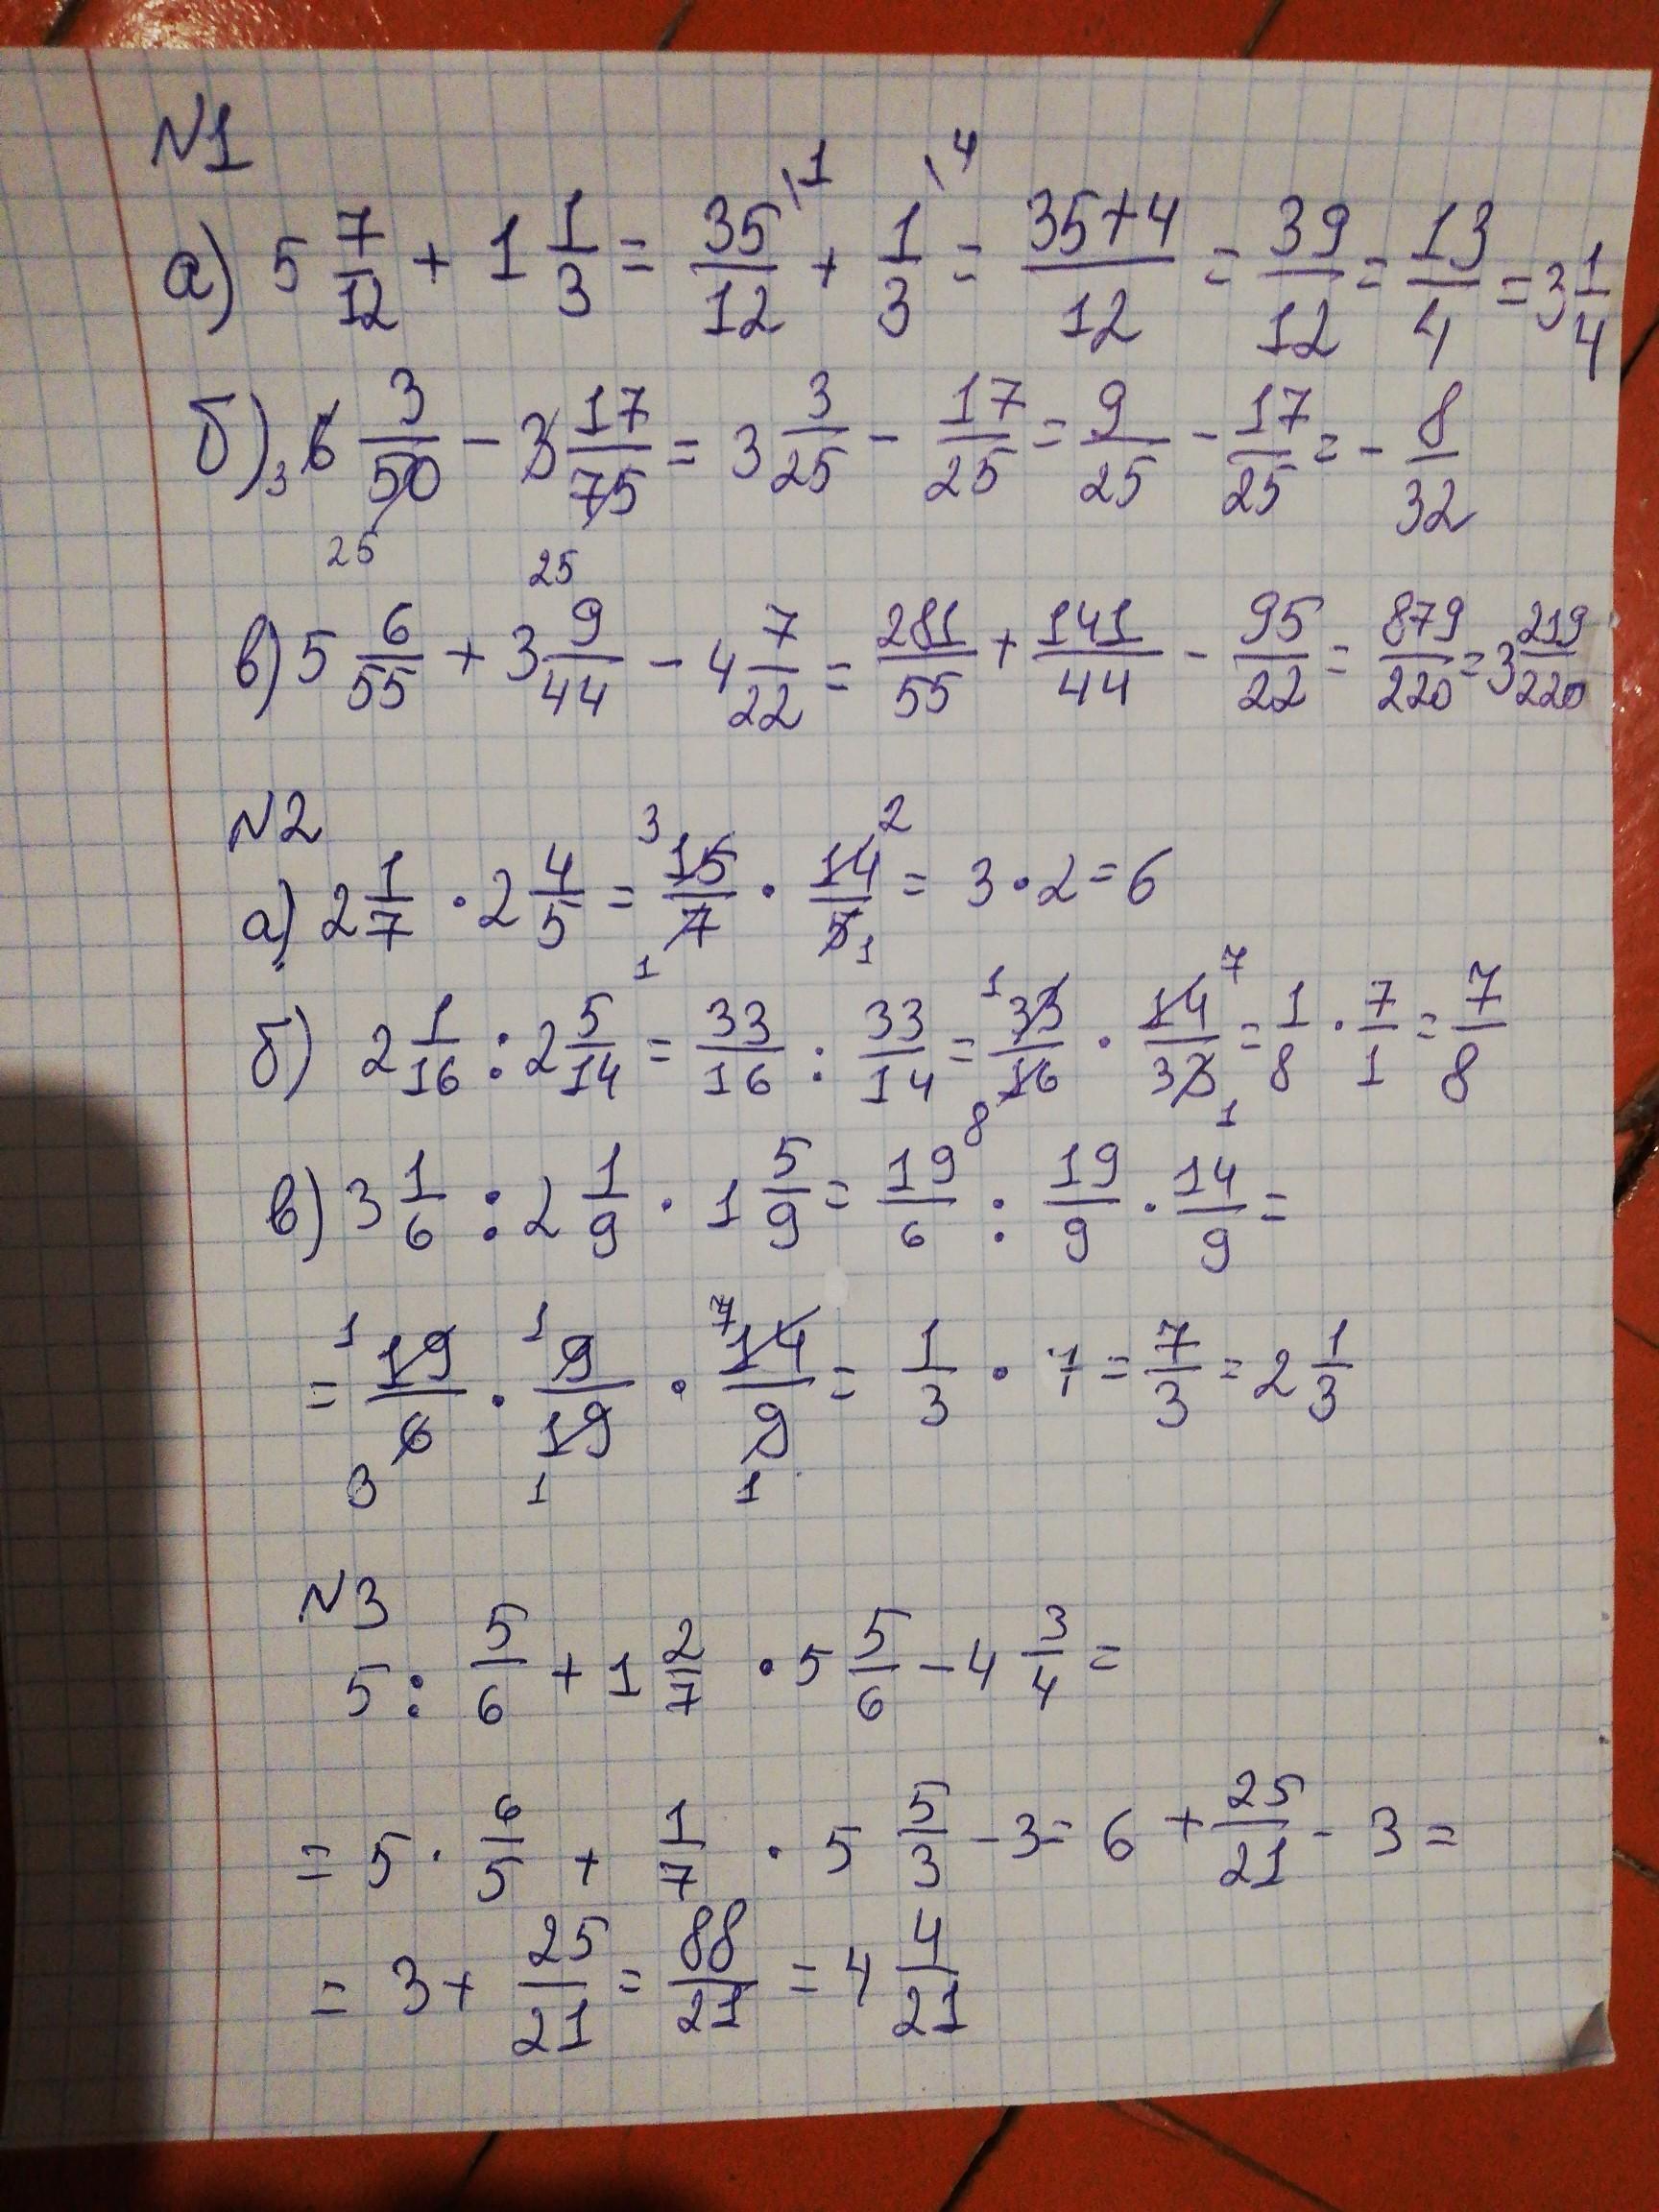 №1
а) 5 7/12 + 1 1/3 = 35/12 \1 + 1/3 \4 = 35+4/12 = 39/12 = 13/4 = 3 1/4
б) 3 6 3/50 25 - 3 17/75 25 = 3 3/25 - 17/25 = 9/25 - 17/25 = - 8/32
в) 5 6/55 + 3 9/44 - 4 7/22 = 281/55 + 141/44 - 95/22 = 879/220 = 3 219/220
№2
а) 2 1/7 · 2 4/5 = 3 15/7 1 · 14 2/5 1 = 3 · 2 = 6
б) 2 1/16 : 2 5/14 = 33/16 : 33/14 = 1 33/16 8 · 14 7/33 1 = 1/8 · 7/1 = 7/8
в) 3 1/6 : 2 1/9 · 1 5/9 = 19/6 : 19/9 · 14/9 =
= 1 19/6 3 · 1 9/19 1 · 7 14/9 1 = 1/3 · 7 = 7/3 = 2 1/3
№3
5 : 5/6 + 1 2/7 · 5 5/6 - 4 3/4 =
= 5 · 6/5 + 1/7 · 5 5/3 - 3 = 6 + 25/21 - 3 =
= 3 + 25/21 = 88/21 = 4 4/21